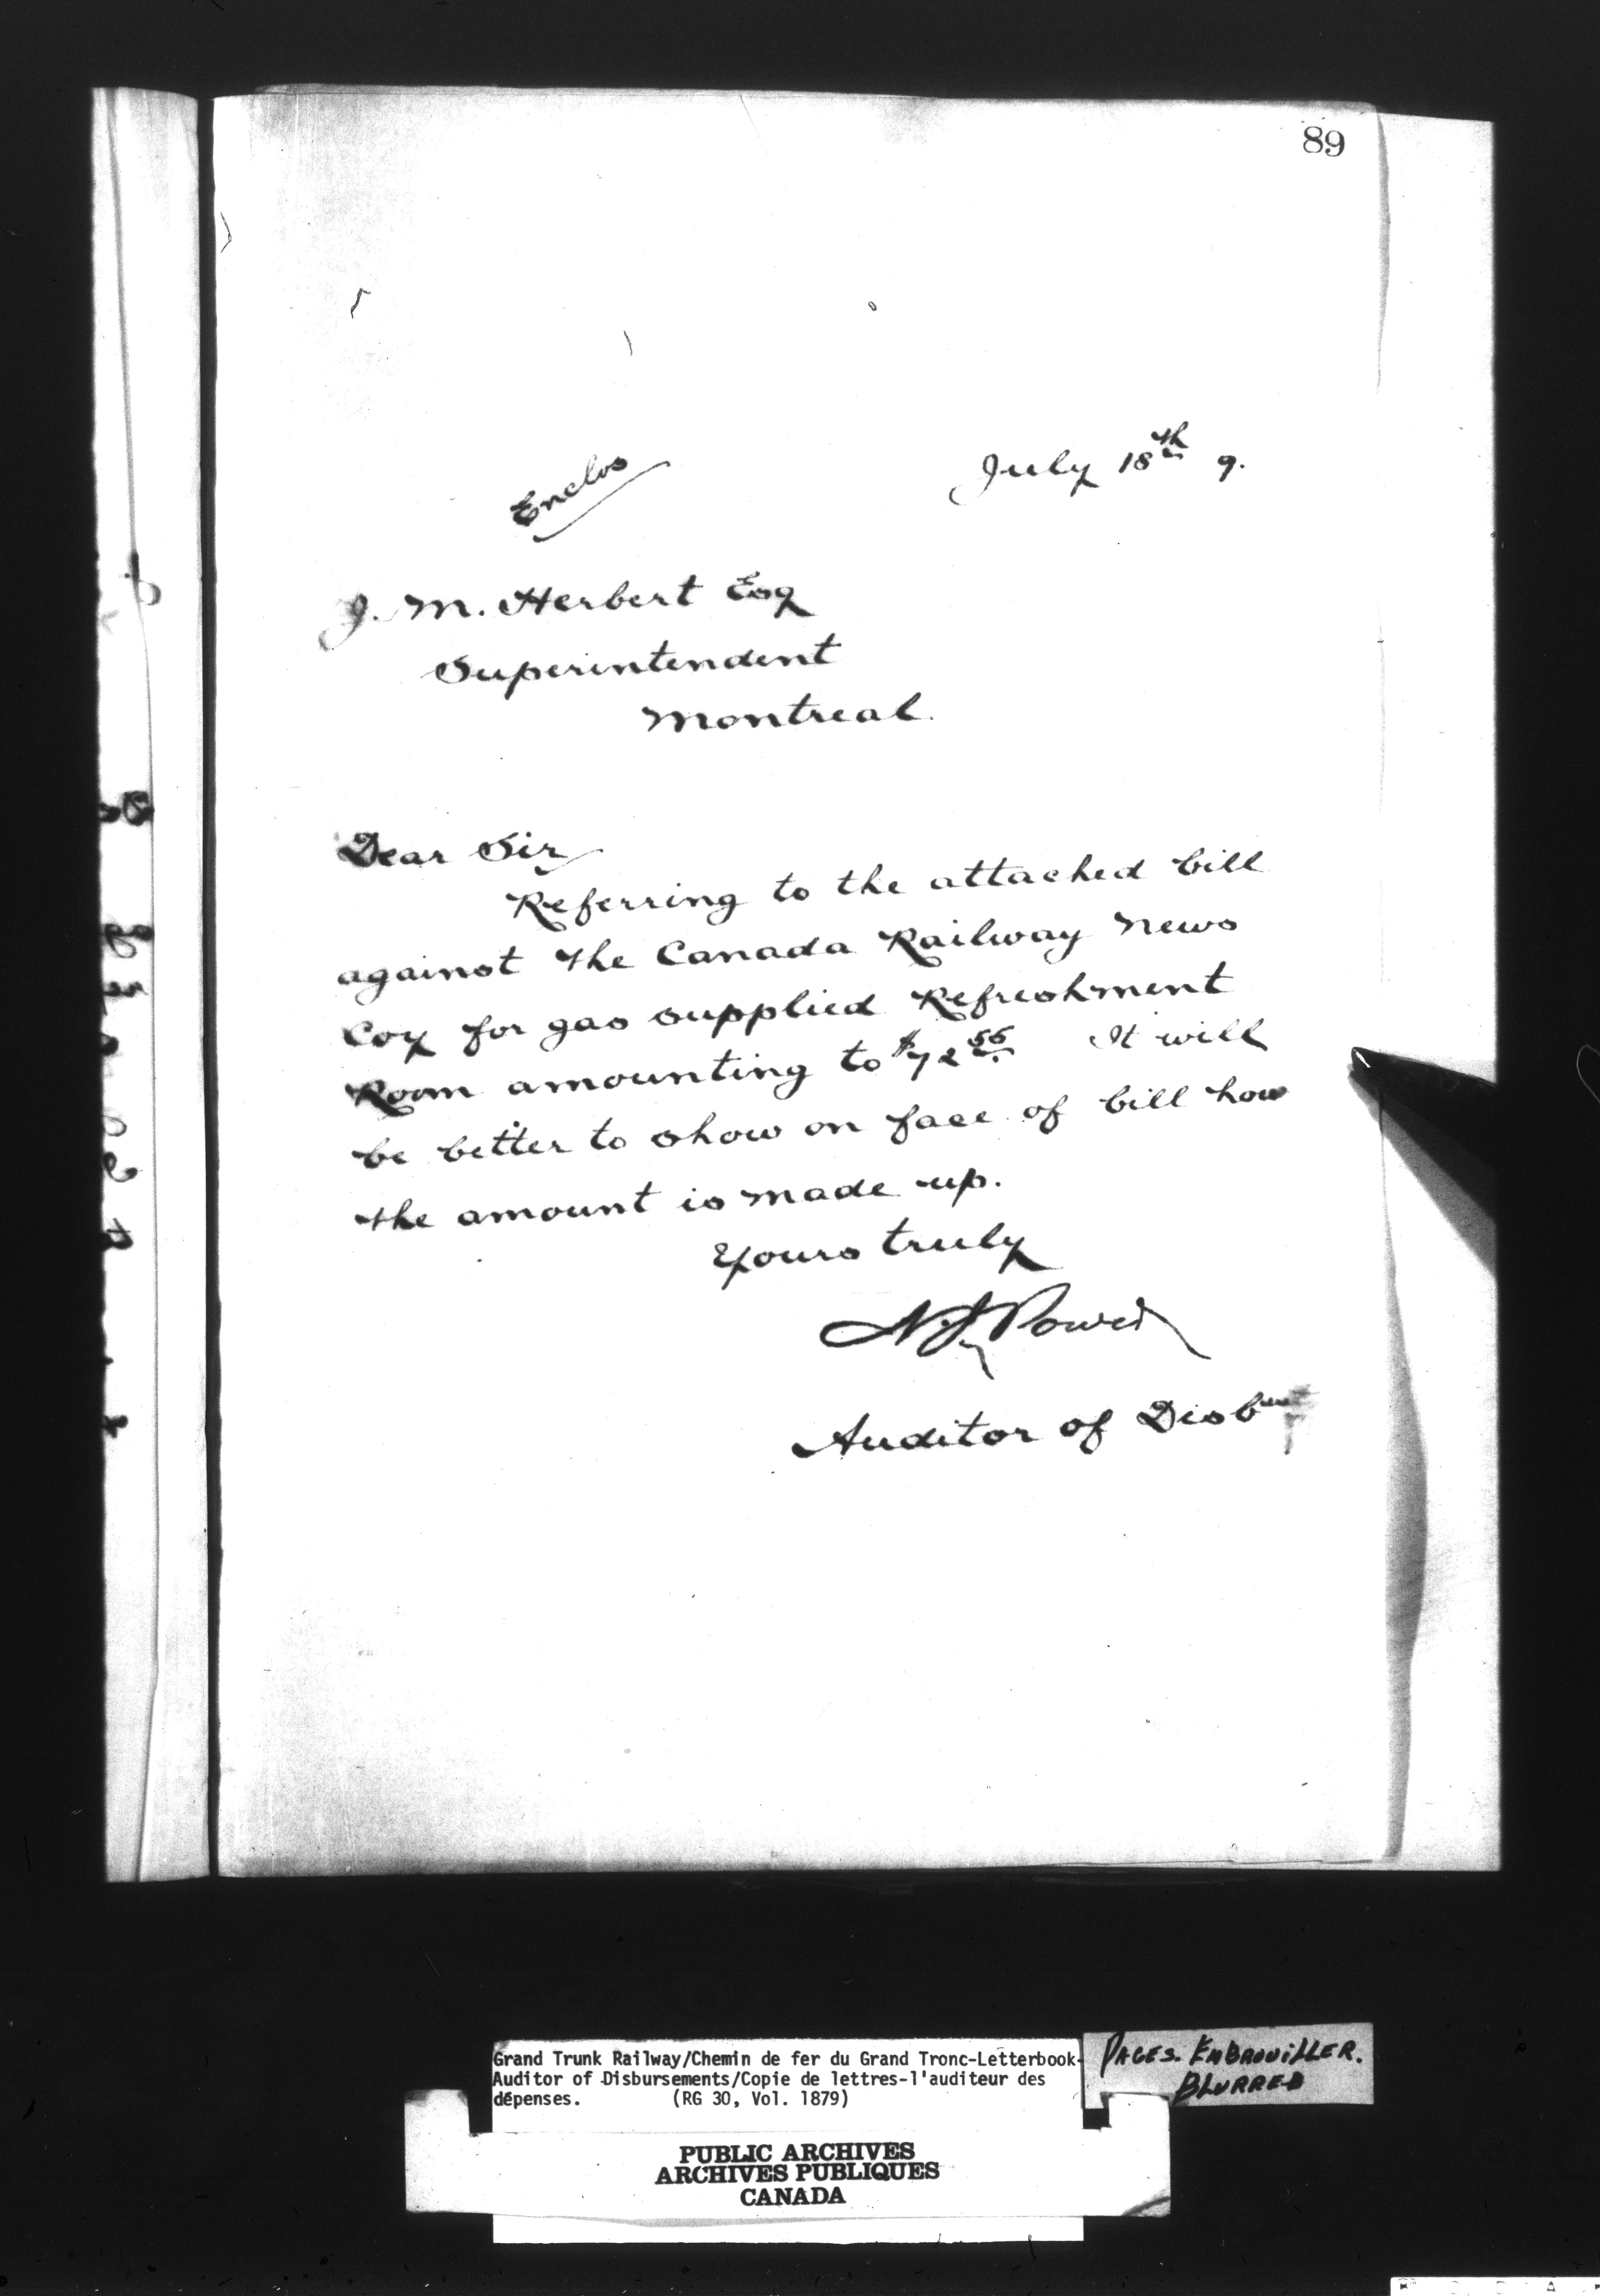 89
July 18th 9.
Enclos
J. M. Herbert Esq
Superintendent
Montreal.
Dear Sir
Referring to the attached bill
against the Canada Railway News
Coy for gas supplied Refreshment
Room amounting to $72.56 It will
be better to show on face of bill how
the amount is made up.
Yours truly
N. J. Power
Auditor of Disbts
Grand Trunk Railway/Chemin de fer du Grand Tronc-Letterbook-
Auditor of Disbursements/Copie de lettres-l'auditeur des
dépenses. (RG 30, Vol. 1879)
PAGES. EMBROUILLER.
BLURRED
PUBLIC ARCHIVES
ARCHIVES PUBLIQUES
CANADA